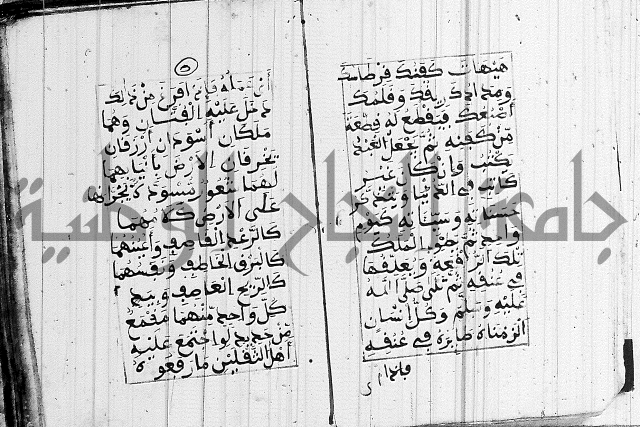 هيهات كفنك قرطاسك
ومدادك ريقك وقلمك
أصبعك فيقطع له قطعة
من كفنه ثم يجعل العبد
يكتب وإن كان غير
كاتب في الدنيا ويذكر
حسناته وسيئاته كيوم
واحد ثم يطوي الملك
تلك الرقعة ويعلقها
في عنقه ثم تلى صلى الله
عليه وسلم وكل انسان
الزمناه طايره في عنقه
فاذا
٥
فاذا فرغ من ذلك
دخل عليه الفتان وهما
ملكان أسودان أزرقان
يخرقان الأرض بأنيابهما
لهما شعور يجرانها
على الأرض كلامهما
كالرعد القاصف وأعينهما
كالبرق الخاطف ونفسهما
كالريح العاصف وبيد
كل واحد منهما مقمع
من حديد لو اجتمع عليه
أهل الثقلين ما رفعوه
جامعة النجاح الوطنية